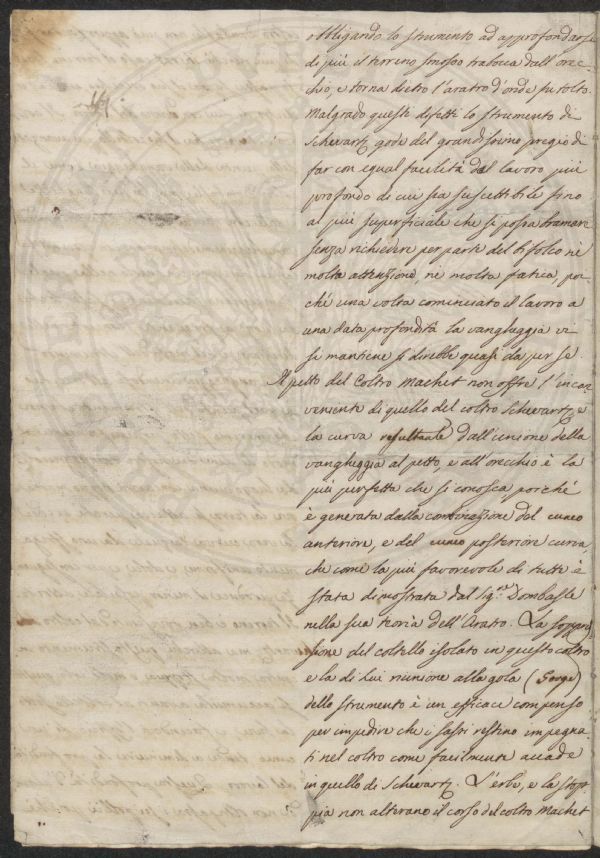 obbligando lo strumento ad approfondarsi
di più il terreno smosso trabocca dall'orec-
chio, e torna dietro l'aratro d'onde fu tolto.
Malgrado questi difetti lo strumento di
Schwartz gode del grandissimo pregio di
far con egual facilità dal lavoro più
profondo di cui sia suscettibile fino
al più superficiale che si possa bramare
senza richiedere per parte del bifolco nè
molta attenzione, nè molta fatica, poi-
ché una volta cominciato il lavoro a
una data profondità la vangheggia vi
si mantiene si direbbe quasi da per se.
Il petto del Coltro Machet non offre l'incon-
veniente di quello del coltro Schwartz, e
la curva resultante dall'unione della
vangheggia al petto, e all'orecchio è la
più perfetta che si conosca, porché
è generata dalla combinazione del cuneo
anteriore, e del cuneo posteriore curvo,
che come la più favorevole di tutte è
stata dimostrata dal Sig.re Dombasle
nella sua teoria dell'Aratro. La soppres-
sione del coltello isolato in questo coltro
e la di lui riunione alla gola (Gorge)
dello strumento è un efficace compenso
per impedire che i sassi restino impegna-
ti nel coltro come facilmente accade
in quello di Schwartz. L'erbe, e la stop-
pia non alterano il corso del coltro Machet